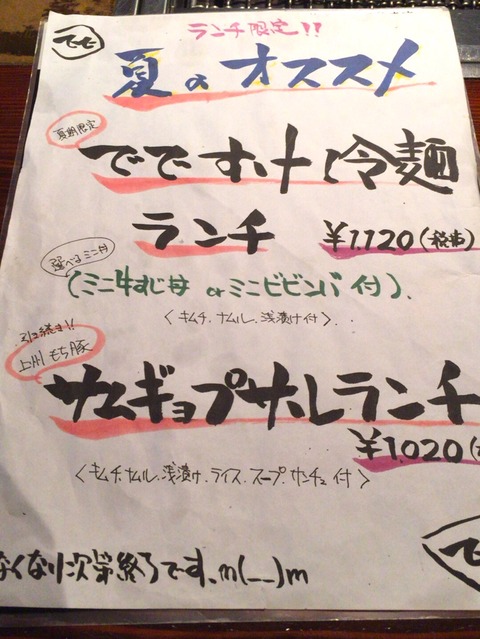 でで
ランチ限定!!
夏のオススメ
夏期限定
でですけ冷麺
ランチ ¥1,120(税抜)
選べるミニ丼
(ミニ牛すじ丼 orミニビビンバ付)
<キムチ、ナムル、浅漬け付>
引き続き!!
上州もち豚
サムギョプサルランチ
¥1,020(
<キムチ、ナムル、浅漬け、ライス、スープ、サンチュ付>
なくなり次第終了です。m(__)m
で